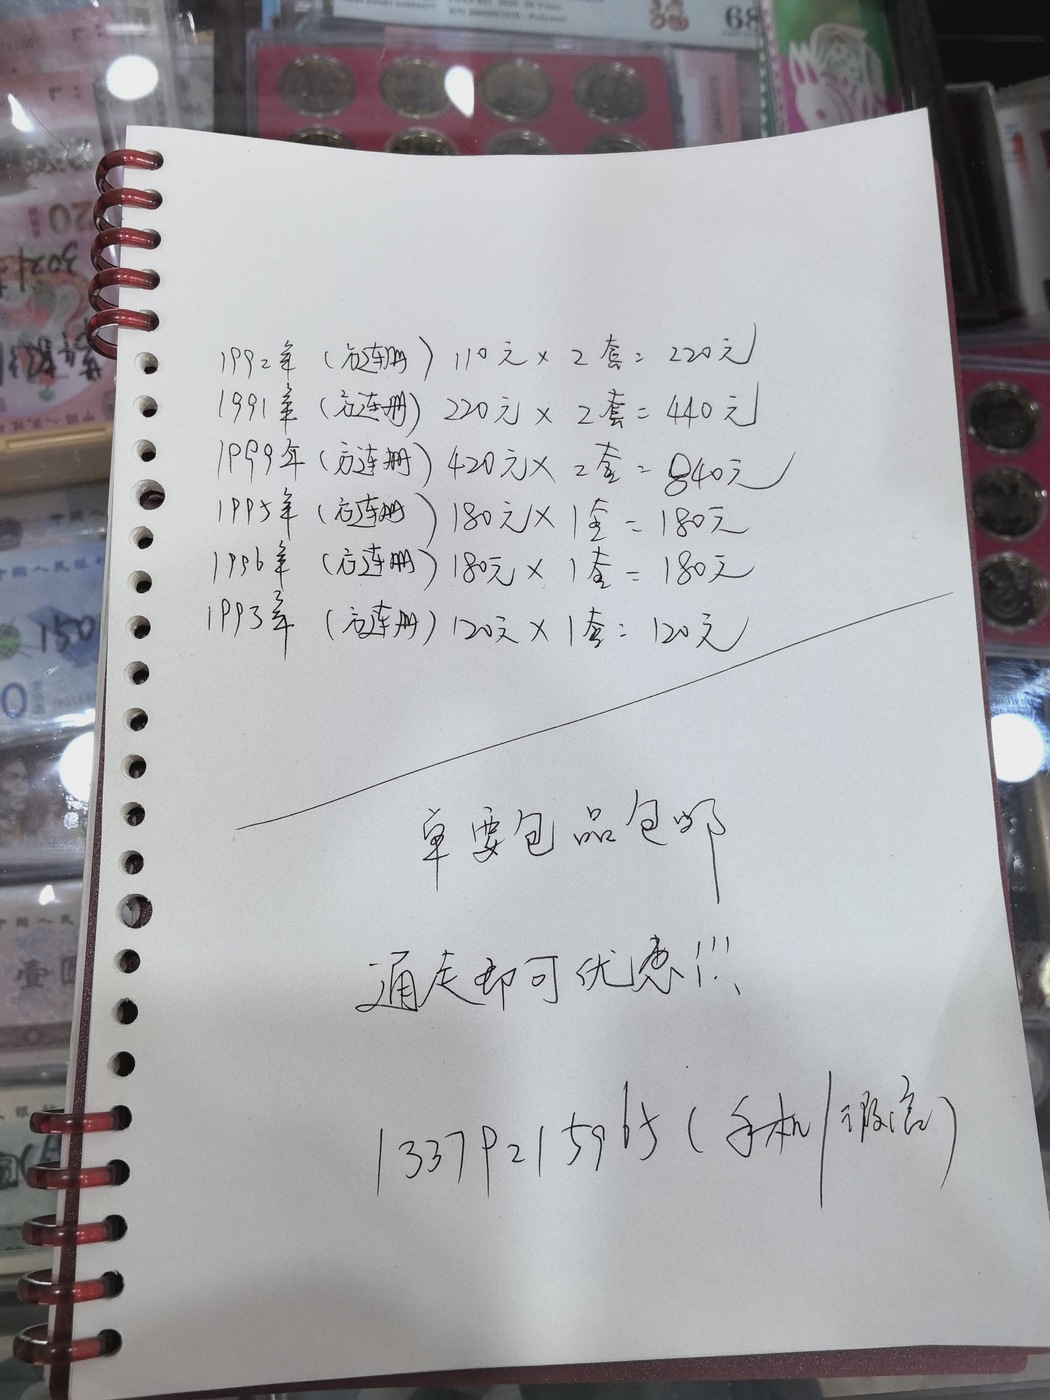 68
1992年（方连册）110元×2套=220元
1991年（方连册）220元×2套=440元
1999年（方连册）420元×2套=840元
1995年（方连册）180元×1套=180元
1996年（方连册）180元×1套=180元
1993年（方连册）120元×1套=120元
单要包品包邮
通走即可优惠!!!
13379215965（手机/微信）